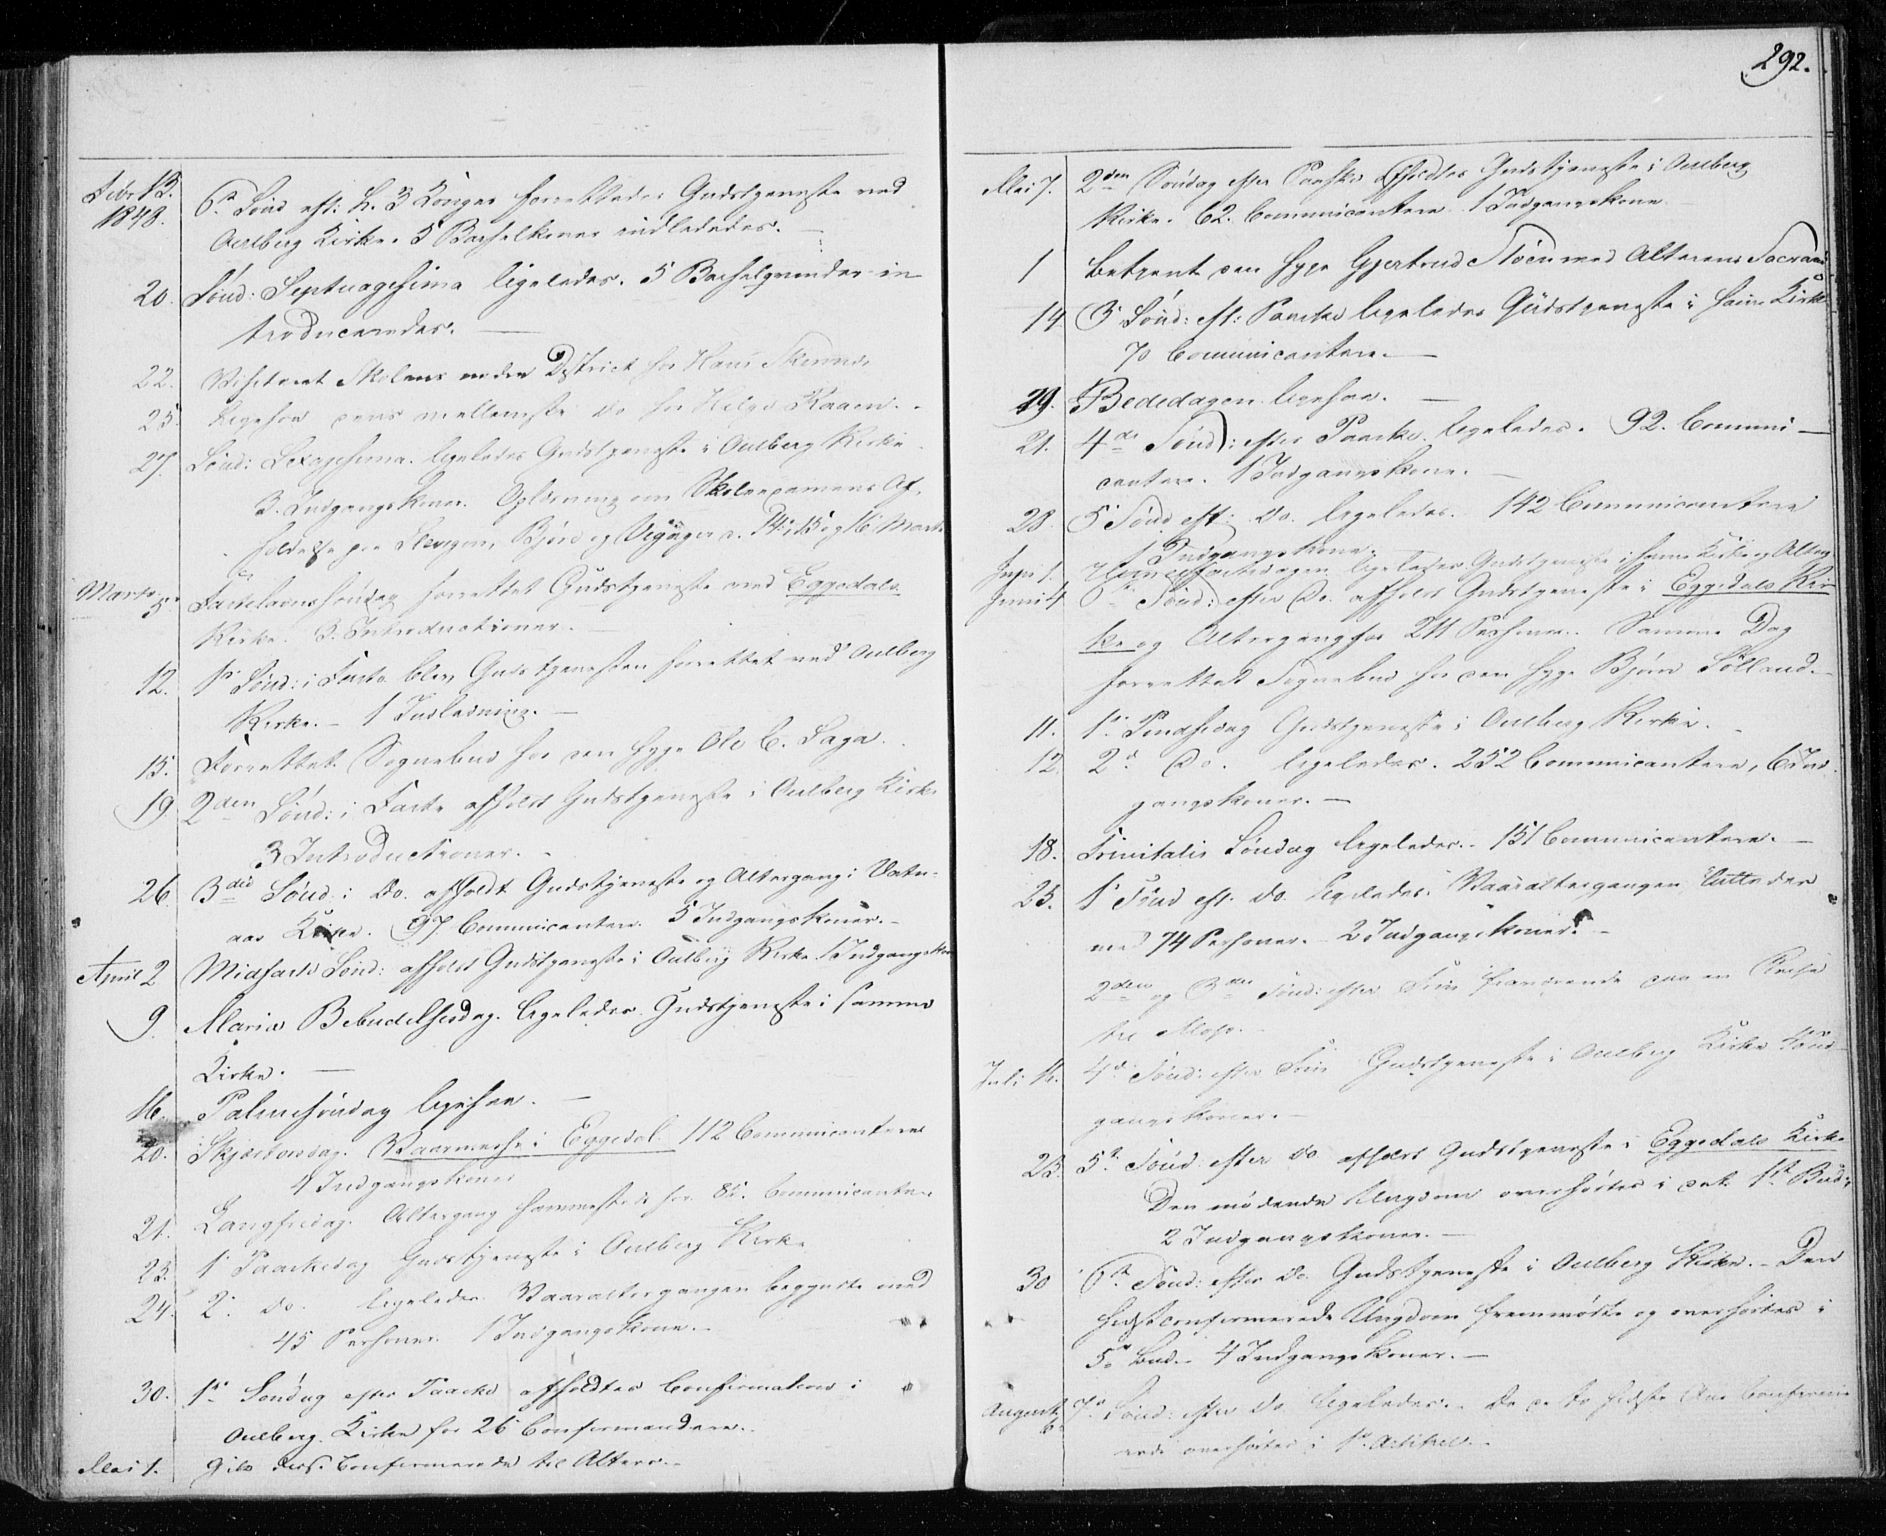 292.
Febr 13. 1848. 6te Sønd eft: H. 3 Konger forrettedes Gudstjeneste ved
Aulberg Kirke. 5 Barselkoner indlededes. —
20. Sønd: Septuagesima ligeledes. 5 Barselqvinder in-
troduceredes. —
22. Visiteret Skolens District hos Hans
25. Ligesaa dens mellemste do hos Helge Raaen. -
27. Sønd: Sexagesima. ligeledes Gudstjeneste i Aulberg Kirke
3. Indgangskoner. Oplæsning om Skoleexamens Af-
holdelse paa Slevigen, Bjøre og 14, 15 og 16 Marts
Marts 5. Fastelavnssøndag forrettet Gudstjeneste ved Eggedals
Kirke. 3. Introductioner.
12. 1e Sønd: i Faste blev Gudstjenesten forrettet ved Aulberg
Kirke. - 1 Indledning. —
15. Forrettet Sognebud hos den syge Ole C. Laga.
19 2den Sønd: i Faste afholdt Gudstjeneste i Aulberg Kirke
3 Introductioner. -
26 3die Sønd: i Do. afholdt Gudstjeneste og Altergang i Vatn-
aas Kirke. 97 Communicantere. 5 Indgangskoner. -
April 2 Midfaste Sønd: afholdt Gudstjeneste i Aulberg Kirke 1 Indgangskone
9. Maria Bebudelsesdag. ligeledes Gudstjeneste i samme
Kirke. —
16. Palmesøndag ligesaa. —
20. Skjærtorsdag. Vaarmesse i Eggedal. 112 Communicantere
4 Indgangskoner
21. Langfredag. Altergang sammesteds for 82. Communicantere
23. 1e Paaskedag Gudstjeneste i Aulberg Kirke
24. 2. do. ligeledes. Vaaraltergangen begyndte med
45 Personer. 1 Indgangskone. -
30. 1ste Søndag efter Paaske afholdtes Confirmation i
Aulberg Kirke for 26 Confirmandere.
Mai 1. Gik disse Confirmerede til Alters. -
Mai 7. 2den Søndag efter Paaske afholdtes Gudstjeneste i Aulberg
Kirke. 62. Communicantere. 1 Indgangskone
1 Betjent den syge Gjertrud Støen med Alterens Sacram:
14 3 Sønd: eft: Paaske ligeledes Gudstjeneste i samme Kirke
70 Communicantere. —
19. Bededagen ligesaa. —
21. 4de Sønd: efter Paaske ligeledes. 92. Communi-
cantere. 1 Indgangskone. —
28. 5 Sønd eft: Do. ligeledes. 142 Communicantere
1 Indgangskone.
Juni 1. Himmelfartsdagen ligeledes Gudstjeneste i samme Kirke og Alterg.
Juni 4 6te Sønd: efter Do. afholdt Gudstjeneste i Eggedals Kir-
ke og Altergang for 211 Personer. Samme Dag
forrettet Sognebud hos den syge Bjørn Sølland. -
11. 1e Pindsedag Gudstjeneste i Aulberg Kirke. -
12. 2d Do. ligeledes. 252 Communicantere, 6 Ind-
gangskoner. —
18. Trinitatis Søndag ligeledes. - 151 Communicantere. —
25. 1 Sønd eft. do. ligeledes. Vaaraltergangen sluttedes
med 74 Personer. - 2 Indgangskoner. -
2den og 3die Sønd: efter Trin fraværende paa en Reise
til Moss. -
Juli 16. 4de Sønd: efter Trin Gudstjeneste i Aulberg Kirke
gangskoner. -
23. 5te Sønd: efter do afholdt Gudstjeneste i Eggedals Kirke
Den mødende Ungdom overhørtes i det 1ste Bud.
2 Indgangskoner. —
30 6te Sønd: efter do. Gudstjeneste i Aulberg Kirke. - Den
sidst confirmerede Ungdom fremmødte og overhørtes i
5te Bud. - 4 Indgangskoner. —
August 6 7de Sønd: efter do ligeledes. - De to sidste Aar Confirme-
rede overhørtes i 1ste Artikel. -